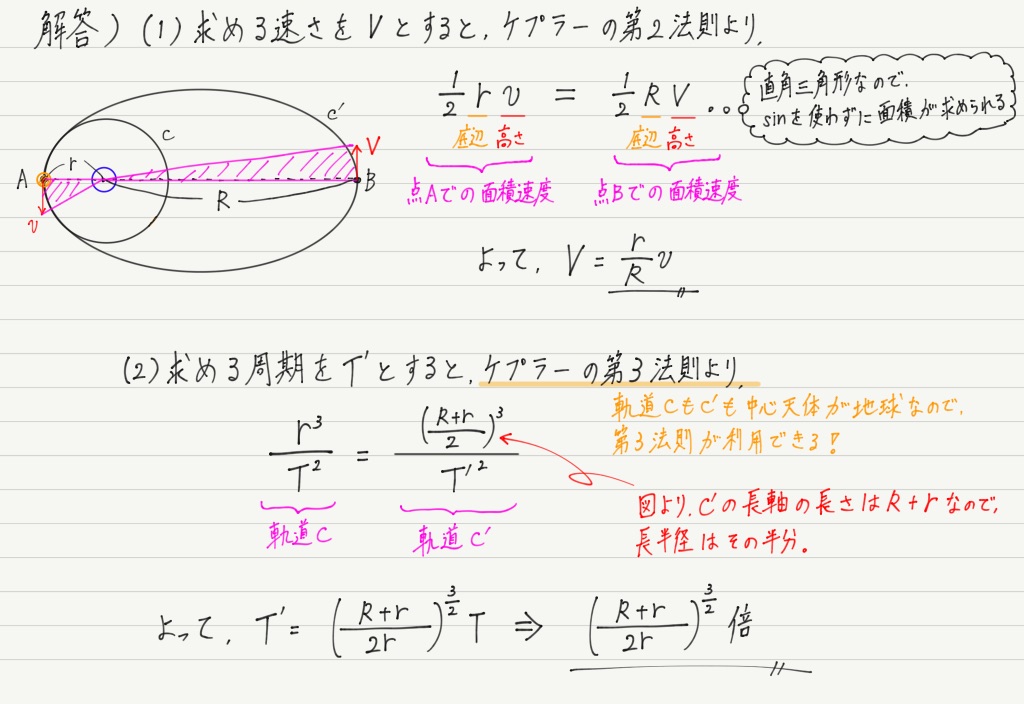 解答)(1)求める速さをVとすると,ケプラーの第2法則より,
1/2 r v = 1/2 R V ...
直角三角形なので,
sinを使わずに面積が求められる
底辺 高さ 底辺 高さ
点Aでの面積速度 点Bでの面積速度
A r C C' V B R v
よって, V = r/R v
(2)求める周期をT'とすると,ケプラーの第3法則より,
軌道CもC'も中心天体が地球なので,
第3法則が利用できる!
r³/T² = ((R+r)/2)³/T'²
軌道C 軌道C'
図より,C'の長軸の長さはR+rなので,
長半径はその半分。
よって, T' = ((R+r)/2r)^(3/2) T ⇒ ((R+r)/2r)^(3/2) 倍